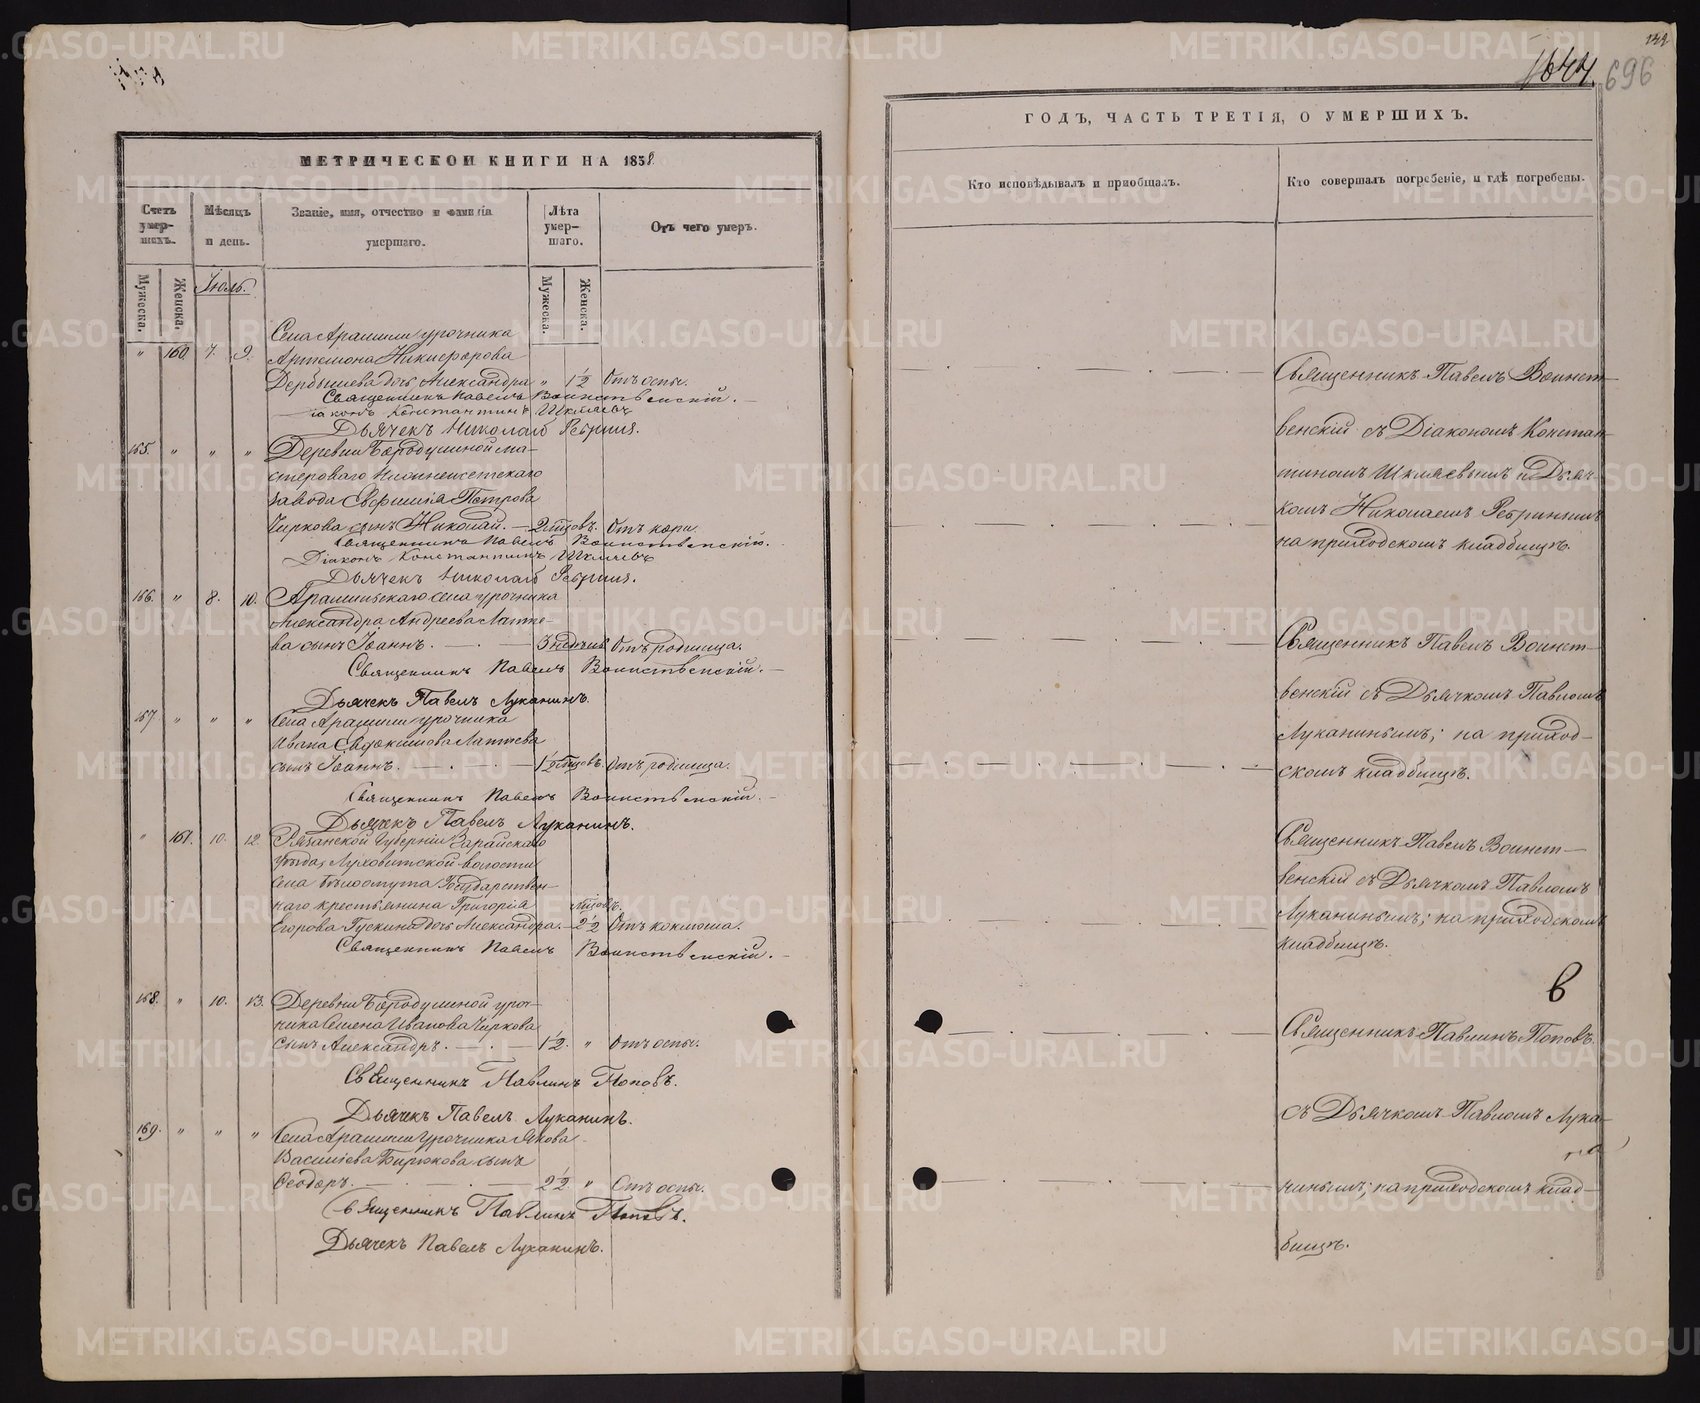 METRIKI.GASO-URAL.RU
1644. 696
МЕТРИЧЕСКОЙ КНИГИ НА 1858
Счетъ умер-шихъ.
Мѣсяцъ и день.
Званіе, имя, отчество и фамилія умершаго.
Лѣта умер-шаго.
Отъ чего умеръ.
Мужеска. Женска. Іюль. Мужеска. Женска.
Села Арамили урочника
" 160. 7. 9. Артемона Никифорова
Дербышева дочь Александра " 1½ Отъ оспы.
Священникъ Павелъ Воинственскій.
Діаконъ Константинъ Шкляевъ
Дьячекъ Николай Ребринъ.
165. " " " Деревни Бородулиной ма-
стероваго Нижнеисетскаго
завода Евфимія Петрова
Чиркова сынъ Николай. — 2 мѣсяцовъ. Отъ кори.
Священникъ Павелъ Воинственскій.
Діаконъ Константинъ Шкляевъ
Дьячекъ Николай Ребринъ.
166. " 8. 10. Арамильскаго села урочника
Александра Андреева Лапте-
ва сынъ Іоаннъ. — 3 недѣль Отъ родимца.
Священникъ Павелъ Воинственскій.
Дьячекъ Павелъ Луканинъ.
167 " " " Села Арамили урочника
Ивана Евдокимова Лаптева
сынъ Іоаннъ. — 1½ мѣсяцовъ. Отъ родимца.
Священникъ Павелъ Воинственскій.
Дьячекъ Павелъ Луканинъ.
" 161. 10. 12. Рязанской Губерніи Зарайскаго
уѣзда, Луховитской волости
села Бѣлоомута Государствен-
наго крестьянина Григорія
Егорова Гускина дочь Александра. — 2½ мѣсяцовъ. Отъ коклюша.
Священникъ Павелъ Воинственскій.
168. " 10. 13. Деревни Бородулиной уроч-
ника Семена Иванова Чиркова
сынъ Александръ. — 1½. " Отъ оспы.
Священникъ Павлинъ Поповъ.
Дьячекъ Павелъ Луканинъ.
169. " " " Села Арамили урочника Якова
Василіева Бирюкова сынъ
Ѳеодоръ. — 2½ " Отъ оспы.
Священникъ Павлинъ Поповъ.
Дьячекъ Павелъ Луканинъ.
ГОДЪ, ЧАСТЬ ТРЕТІЯ, О УМЕРШИХЪ.
Кто исповѣдывалъ и пріобщалъ.
Кто совершалъ погребеніе, и гдѣ погребены.
Священникъ Павелъ Воинст-
венскій съ Діакономъ Констан-
тиномъ Шкляевымъ и Дьяч-
комъ Николаемъ Ребринымъ
на приходскомъ кладбищѣ.
Священникъ Павелъ Воинст-
венскій съ Дьячкомъ Павломъ
Луканинымъ; на приход-
скомъ кладбищѣ.
Священникъ Павелъ Воинст-
венскій съ Дьячкомъ Павломъ
Луканинымъ; на приходскомъ
кладбищѣ.
Священникъ Павлинъ Поповъ.
съ Дьячкомъ Павломъ Лука-
нинымъ; на приходскомъ клад-
бищѣ.